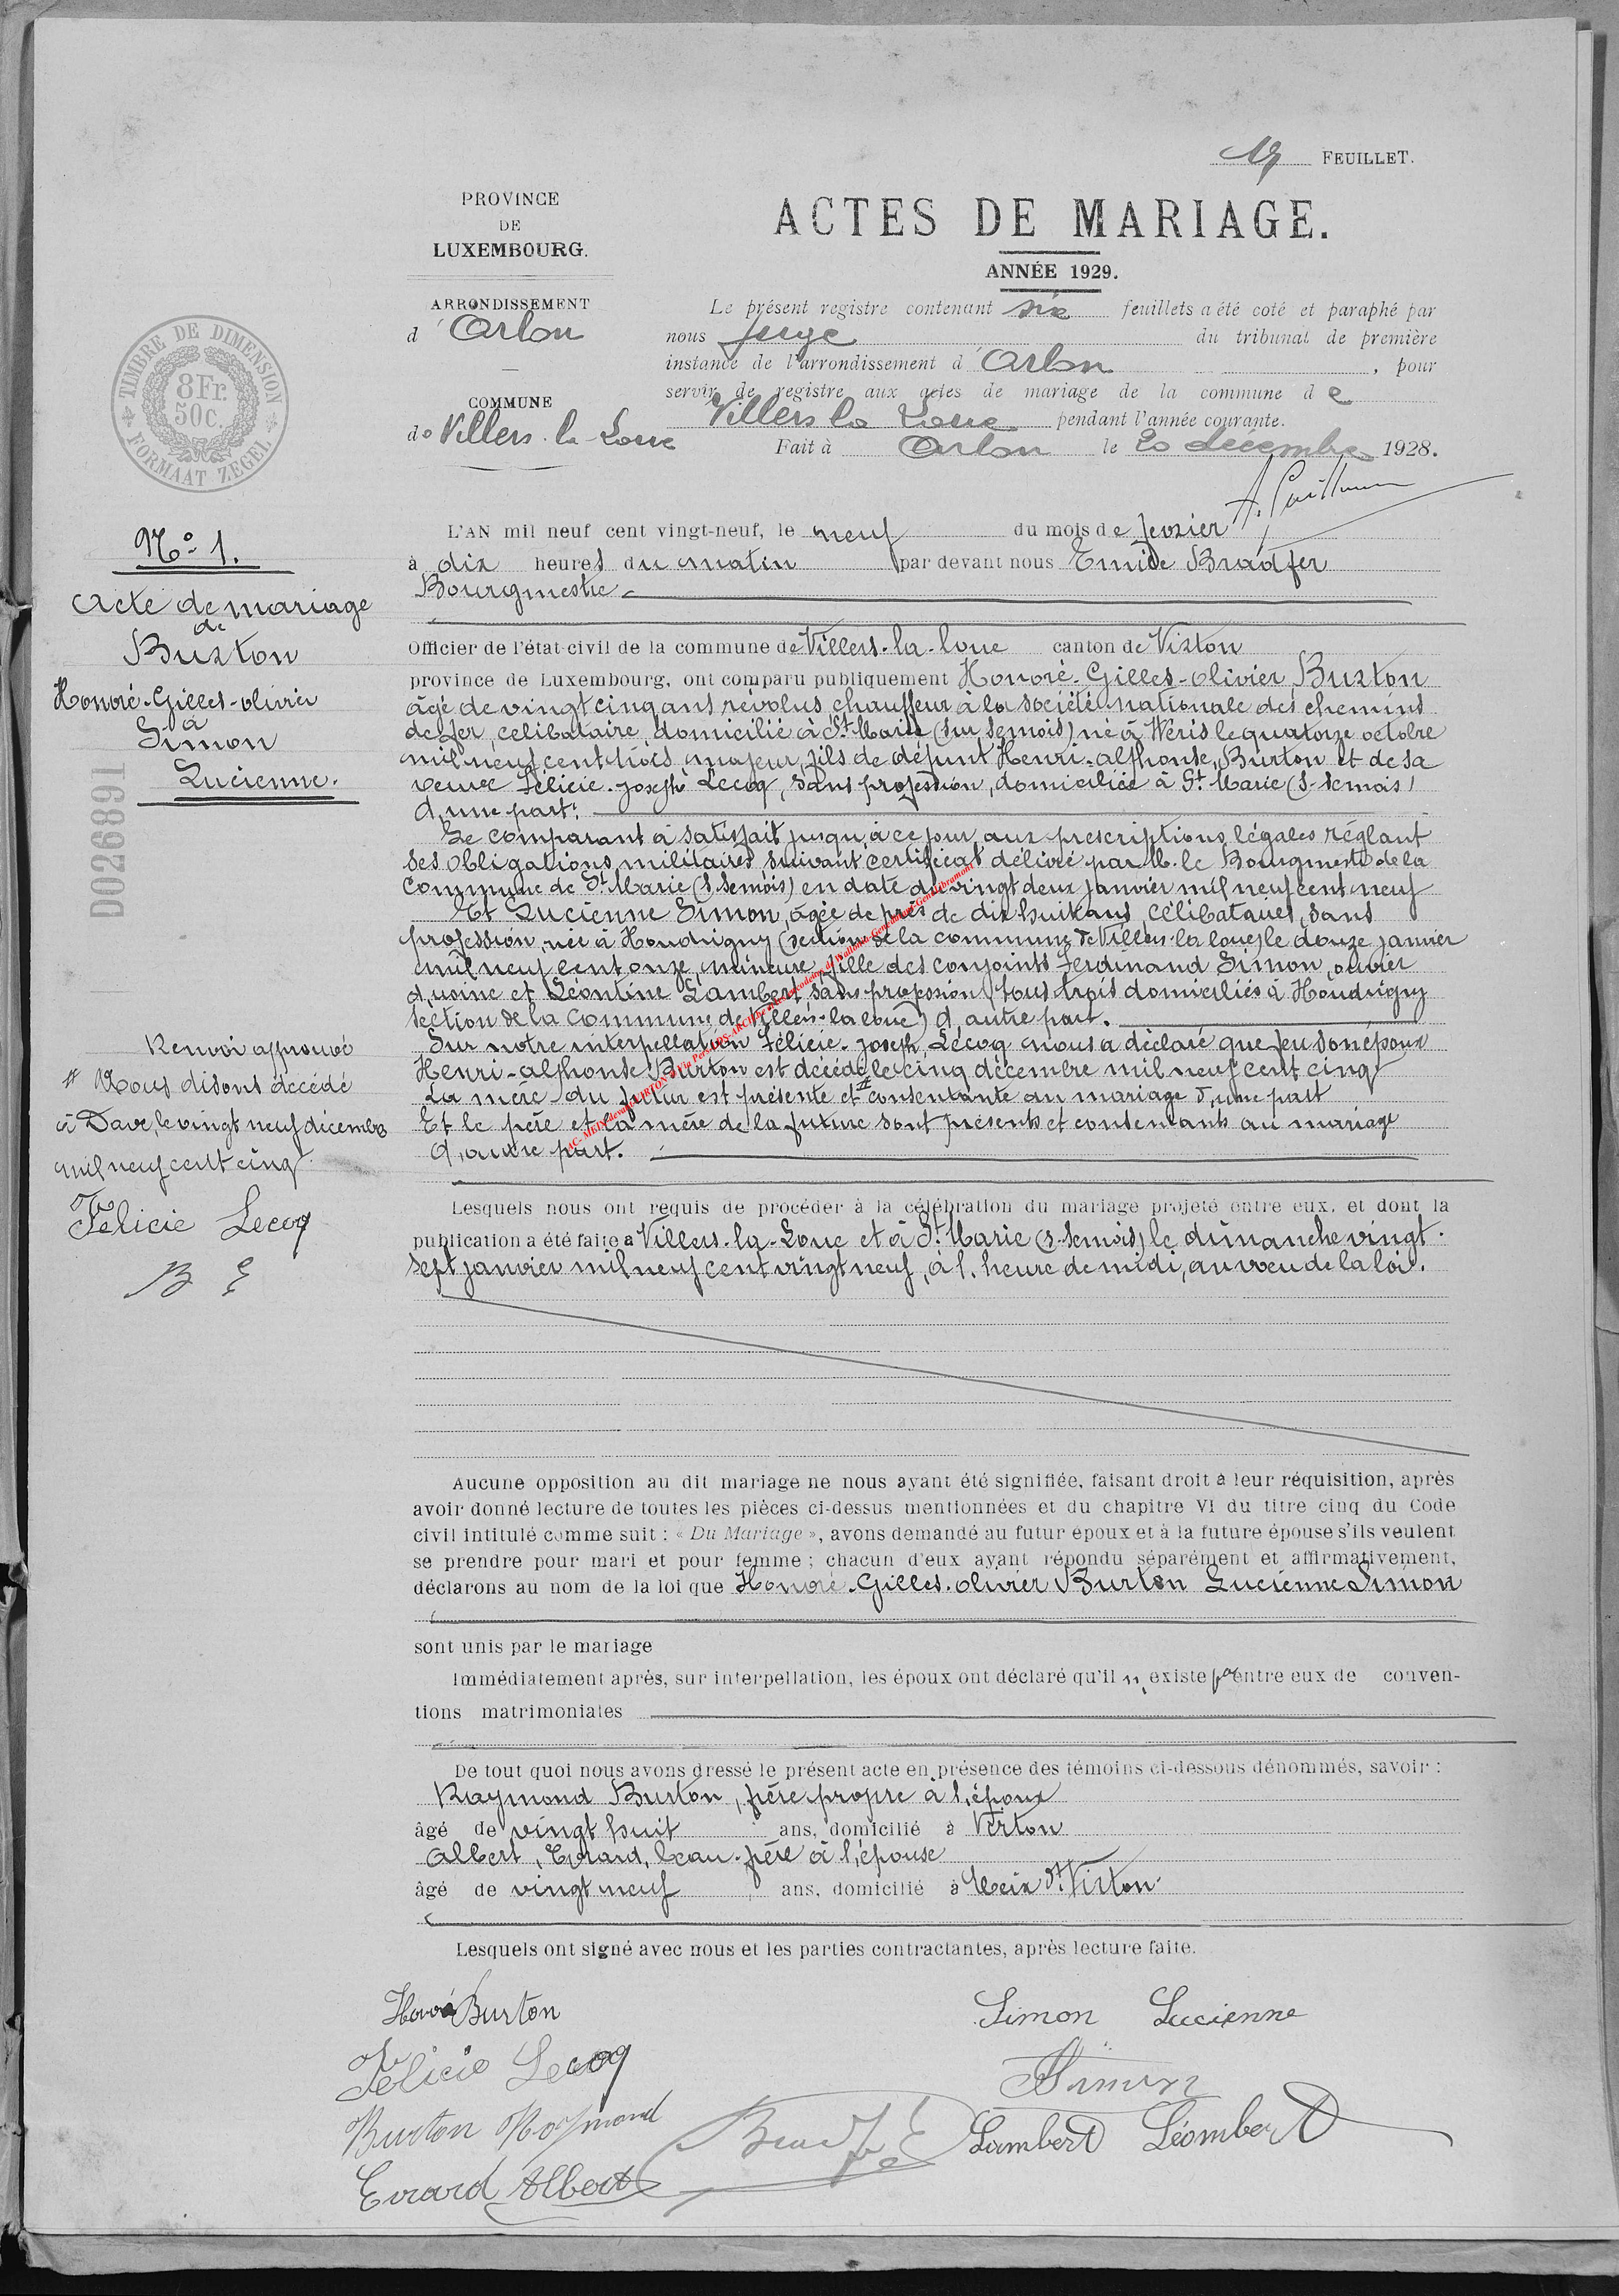 FEUILLET.
PROVINCE
DE
LUXEMBOURG.
ARRONDISSEMENT
d'Arlon
COMMUNE
de Villers-la-Loue
ACTES DE MARIAGE.
ANNÉE 1929.
Le présent registre contenant six feuillets a été coté et paraphé par
nous Juge du tribunal de première
instance de l'arrondissement d'Arlon, pour
servir de registre aux actes de mariage de la commune de
Villers la Loue pendant l'année courante.
Fait à Arlon le 20 décembre 1928.
TIMBRE DE DIMENSION
8Fr.
50c.
FORMAAT ZEGEL
No 1.
Acte de mariage
de
Burton
Honoré-Gilles-olivier
à
Simon
Lucienne.
D026891
Renvoi approuvé
# Nous disons décédé
à Dave, le vingt neuf décembre
mil neuf cent cinq
Félicie Lecoq
B E
L'AN mil neuf cent vingt-neuf, le neuf du mois de fevrier
à dix heures du matin par devant nous Emide Bradfer
Bourgmestre
Officier de l'état-civil de la commune de Villers-la-loue canton de Virton
province de Luxembourg, ont comparu publiquement Honoré-Gilles-olivier Burton
âgé de vingt cinq ans révolus, chauffeur à la société nationale des chemins
de fer, celibataire, domicilié à St Marie (sur Semois) né à Wéris le quatorze octobre
mil neuf cent trois, majeur, fils de défunt Henri-alphonse, Burton et de sa
veuve Félicie-joseph Lecoq, sans profession, domiciliée à St. Marie (s-Semois)
d'une part.
Le comparant a satisfait jusqu'à ce jour aux prescriptions légales réglant
ses obligations militaires suivant certificat délivré par M. le Bourgmestre de la
commune de St Marie (s. Semois) en date du vingt deux janvier mil neuf cent neuf
Et Lucienne Simon, âgée de près de dix huit ans, célibataires, sans
profession, née à Houdrigny (section de la commune de Villers-la loue) le douze janvier
mil neuf cent onze, mineure, fille des conjoints Ferdinand Simon, ouvrier
d'usine et Léontine Lambert, sans profession (tous trois domiciliés à Houdrigny
section de la commune de Villers-la loue) d'autre part.
Sur notre interpellation Félicie-joseph, Lecoq nous a déclaré que feu son époux
Henri-alphonse Burton est décédé le cinq décembre mil neuf cent cinq
La mère du futur est présente et # consentante au mariage d'une part
Et le père et la mère de la future sont présents et consentants au mariage
d'autre part.
Lesquels nous ont requis de procéder à la célébration du mariage projeté entre eux, et dont la
publication a été faite à Villers-la-Loue et à St. Marie (s-Semois) le dimanche vingt-
sept janvier mil neuf cent vingt neuf, à l'heure de midi, au vœu de la loi.
Aucune opposition au dit mariage ne nous ayant été signifiée, faisant droit à leur réquisition, après
avoir donné lecture de toutes les pièces ci-dessus mentionnées et du chapitre VI du titre cinq du Code
civil intitulé comme suit : « Du Mariage », avons demandé au futur époux et à la future épouse s'ils veulent
se prendre pour mari et pour femme ; chacun d'eux ayant répondu séparément et affirmativement,
déclarons au nom de la loi que Honoré-Gilles-olivier Burton Lucienne Simon
sont unis par le mariage
Immédiatement après, sur interpellation, les époux ont déclaré qu'il n'existe pas entre eux de conven-
tions matrimoniales
De tout quoi nous avons dressé le présent acte en présence des témoins ci-dessous dénommés, savoir :
Raymond Burton, frère propre à l'époux
âgé de vingt huit ans, domicilié à Virton
Albert, Evrard, beau-frère à l'épouse
âgé de vingt neuf ans, domicilié à Meix dt Virton
Lesquels ont signé avec nous et les parties contractantes, après lecture faite.
Honoré Burton
Simon Lucienne
Félicie Lecoq
Simon
Burton Raymond
Lambert
Evrard Albert